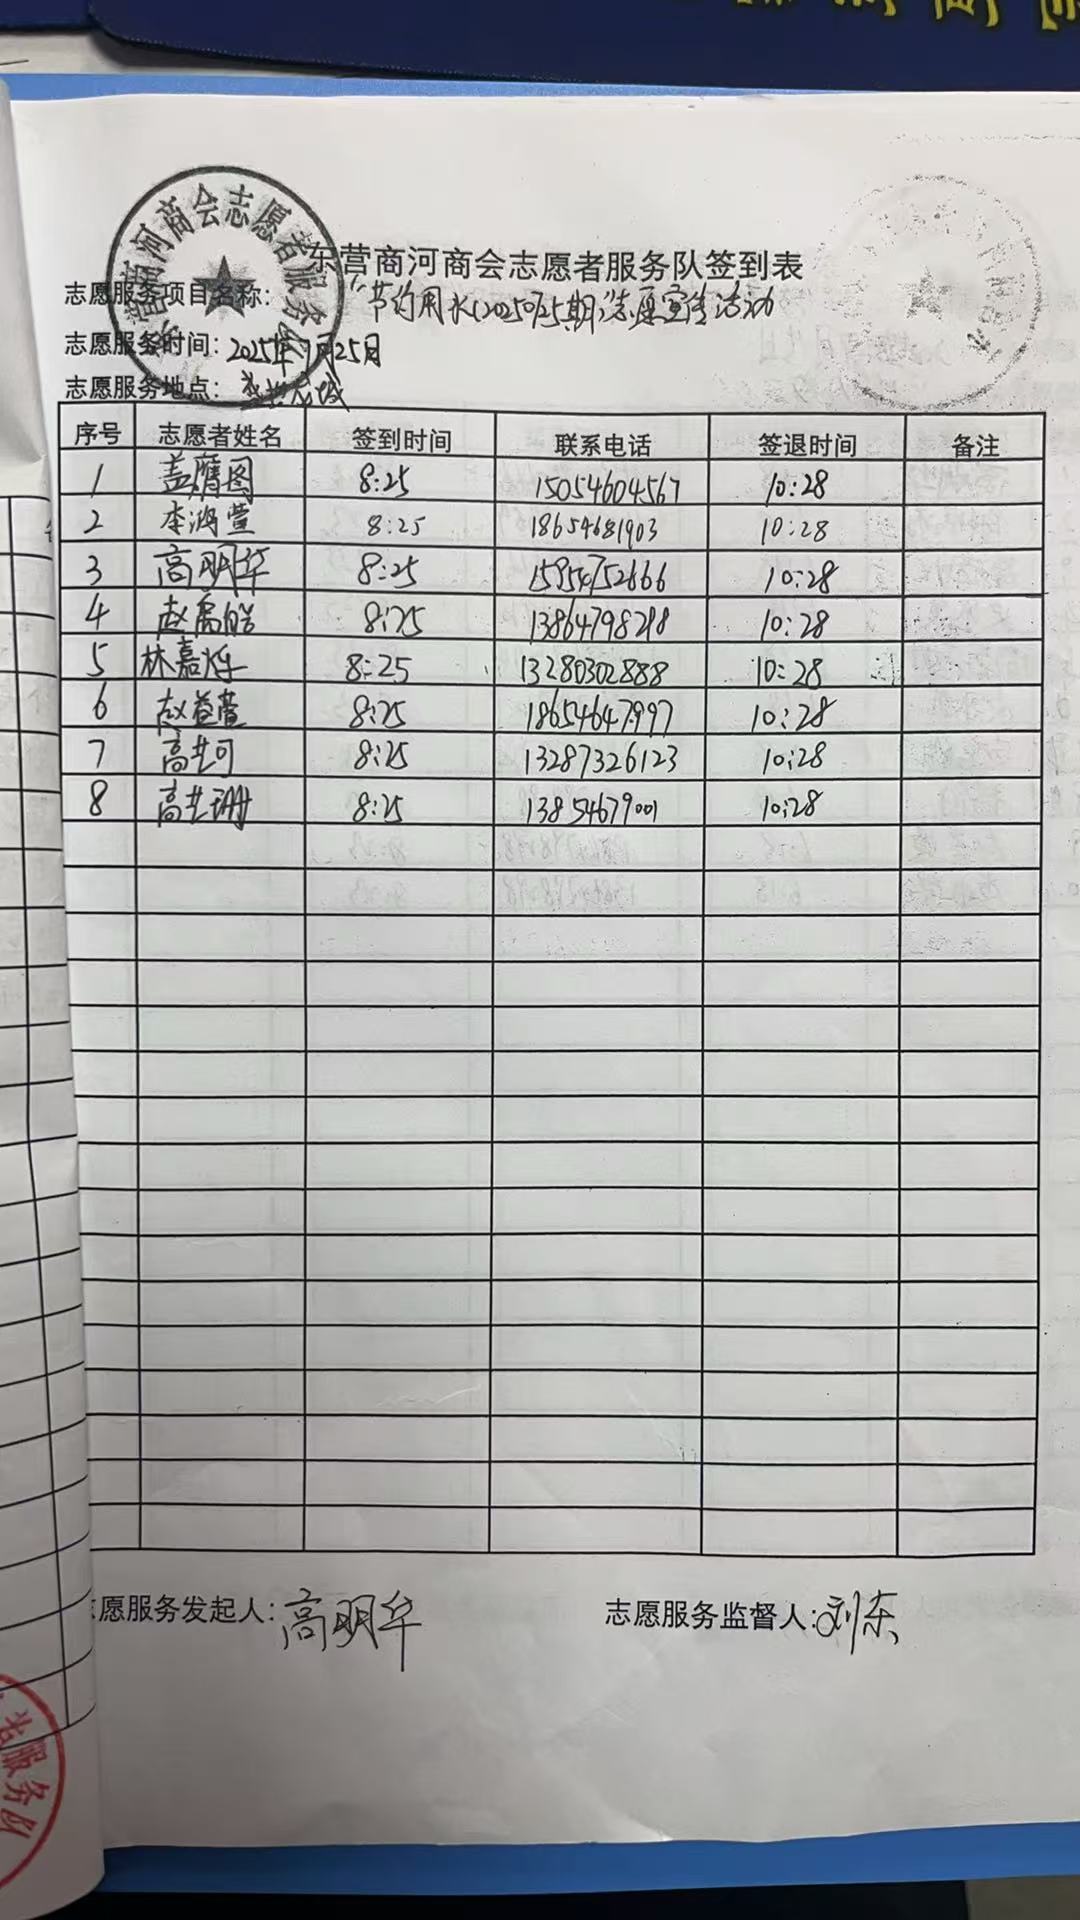 东营商河商会志愿者服务队签到表
志愿服务项目名称："节约用水(2025025期)"志愿宣传活动
志愿服务时间：2025年7月25日
志愿服务地点：
序号 志愿者姓名 签到时间 联系电话 签退时间 备注
1 盖鹰图 8:25 15054604567 10:28
2 李鸿萱 8:25 18654681903 10:28
3 高明华 8:25 15954752666 10:28
4 赵禹皓 8:25 10:28
5 林嘉烨 8:25 13280302888 10:28
6 赵益萱 8:25 18654647997 10:28
7 高艺可 8:25 13287326123 10:28
8 高艺珊 8:25 13854679001 10:28
愿服务发起人：高明华 志愿服务监督人：刘东
者服务队